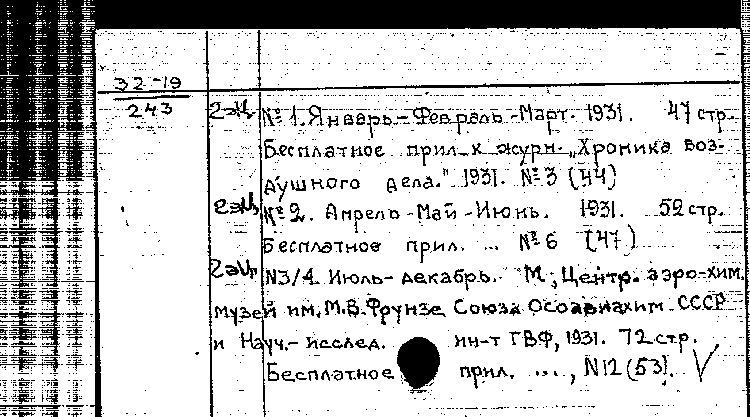 32-19
243
2 экз №1. Январь-Февраль-Март. 1931. 47 стр.
Бесплатное прил. к журн. „Хроника воз-
душного дела." 1931. №3 (44)
2 экз №2. Апрель-Май-Июнь. 1931. 52 стр.
Бесплатное прил. ... №6 (47)
2 экз N3/4. Июль-декабрь. М., Центр. аэро-хим.
музей им. М.В.Фрунзе Союза Осоавиахим СССР
и Науч.-исслед. ин-т ГВФ, 1931. 72 стр.
Бесплатное прил. ..., N12 (53).